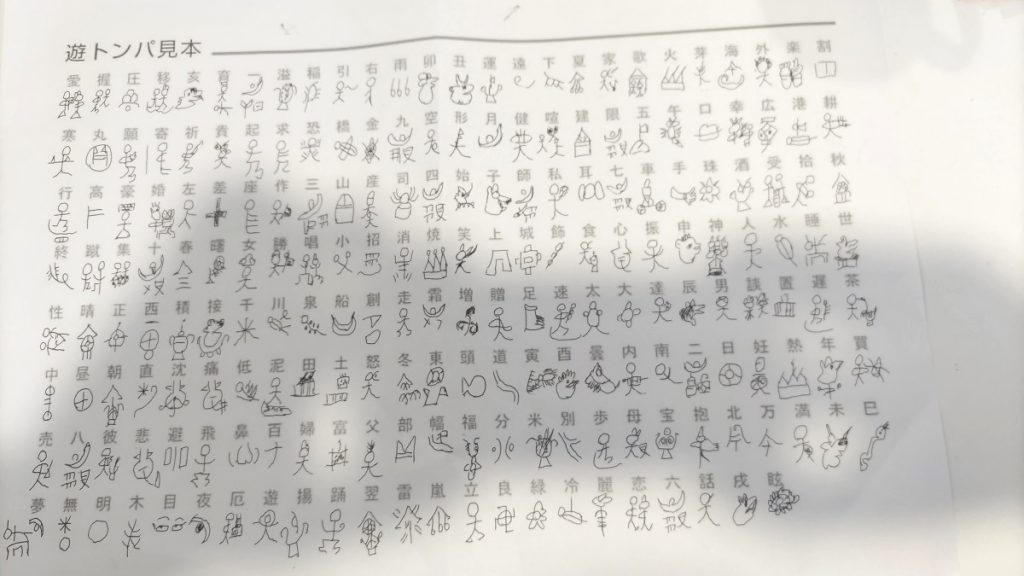 遊トンパ見本
愛 握 圧 移 亥 育 一 溢 稲 引 右 雨 卯 丑 運 遠 下 夏 家 歌 火 芽 海 外 楽 割
寒 丸 願 寄 祈 貴 起 求 恐 橋 金 九 空 形 月 健 喧 建 限 五 午 口 幸 広 港 耕
行 高 豪 婚 左 差 座 作 三 山 産 司 四 始 子 師 私 耳 七 車 手 珠 酒 受 拾 秋
終 蹴 集 十 春 曙 女 勝 唱 小 招 消 焼 笑 上 城 飾 食 心 振 申 神 人 水 睡 世
性 晴 正 西 積 接 千 川 泉 船 創 走 霜 増 贈 足 速 太 大 達 辰 男 談 置 遅 茶
中 昼 朝 直 沈 痛 低 泥 田 土 怒 冬 東 頭 道 寅 酉 曇 内 南 二 日 妊 熱 年 買
売 八 彼 悲 避 飛 鼻 百 婦 富 父 部 幅 福 分 米 別 歩 母 宝 抱 北 万 満 未 巳
夢 無 明 木 目 夜 厄 遊 揚 踊 翌 雷 嵐 立 良 緑 冷 麗 恋 六 話 戌 眩